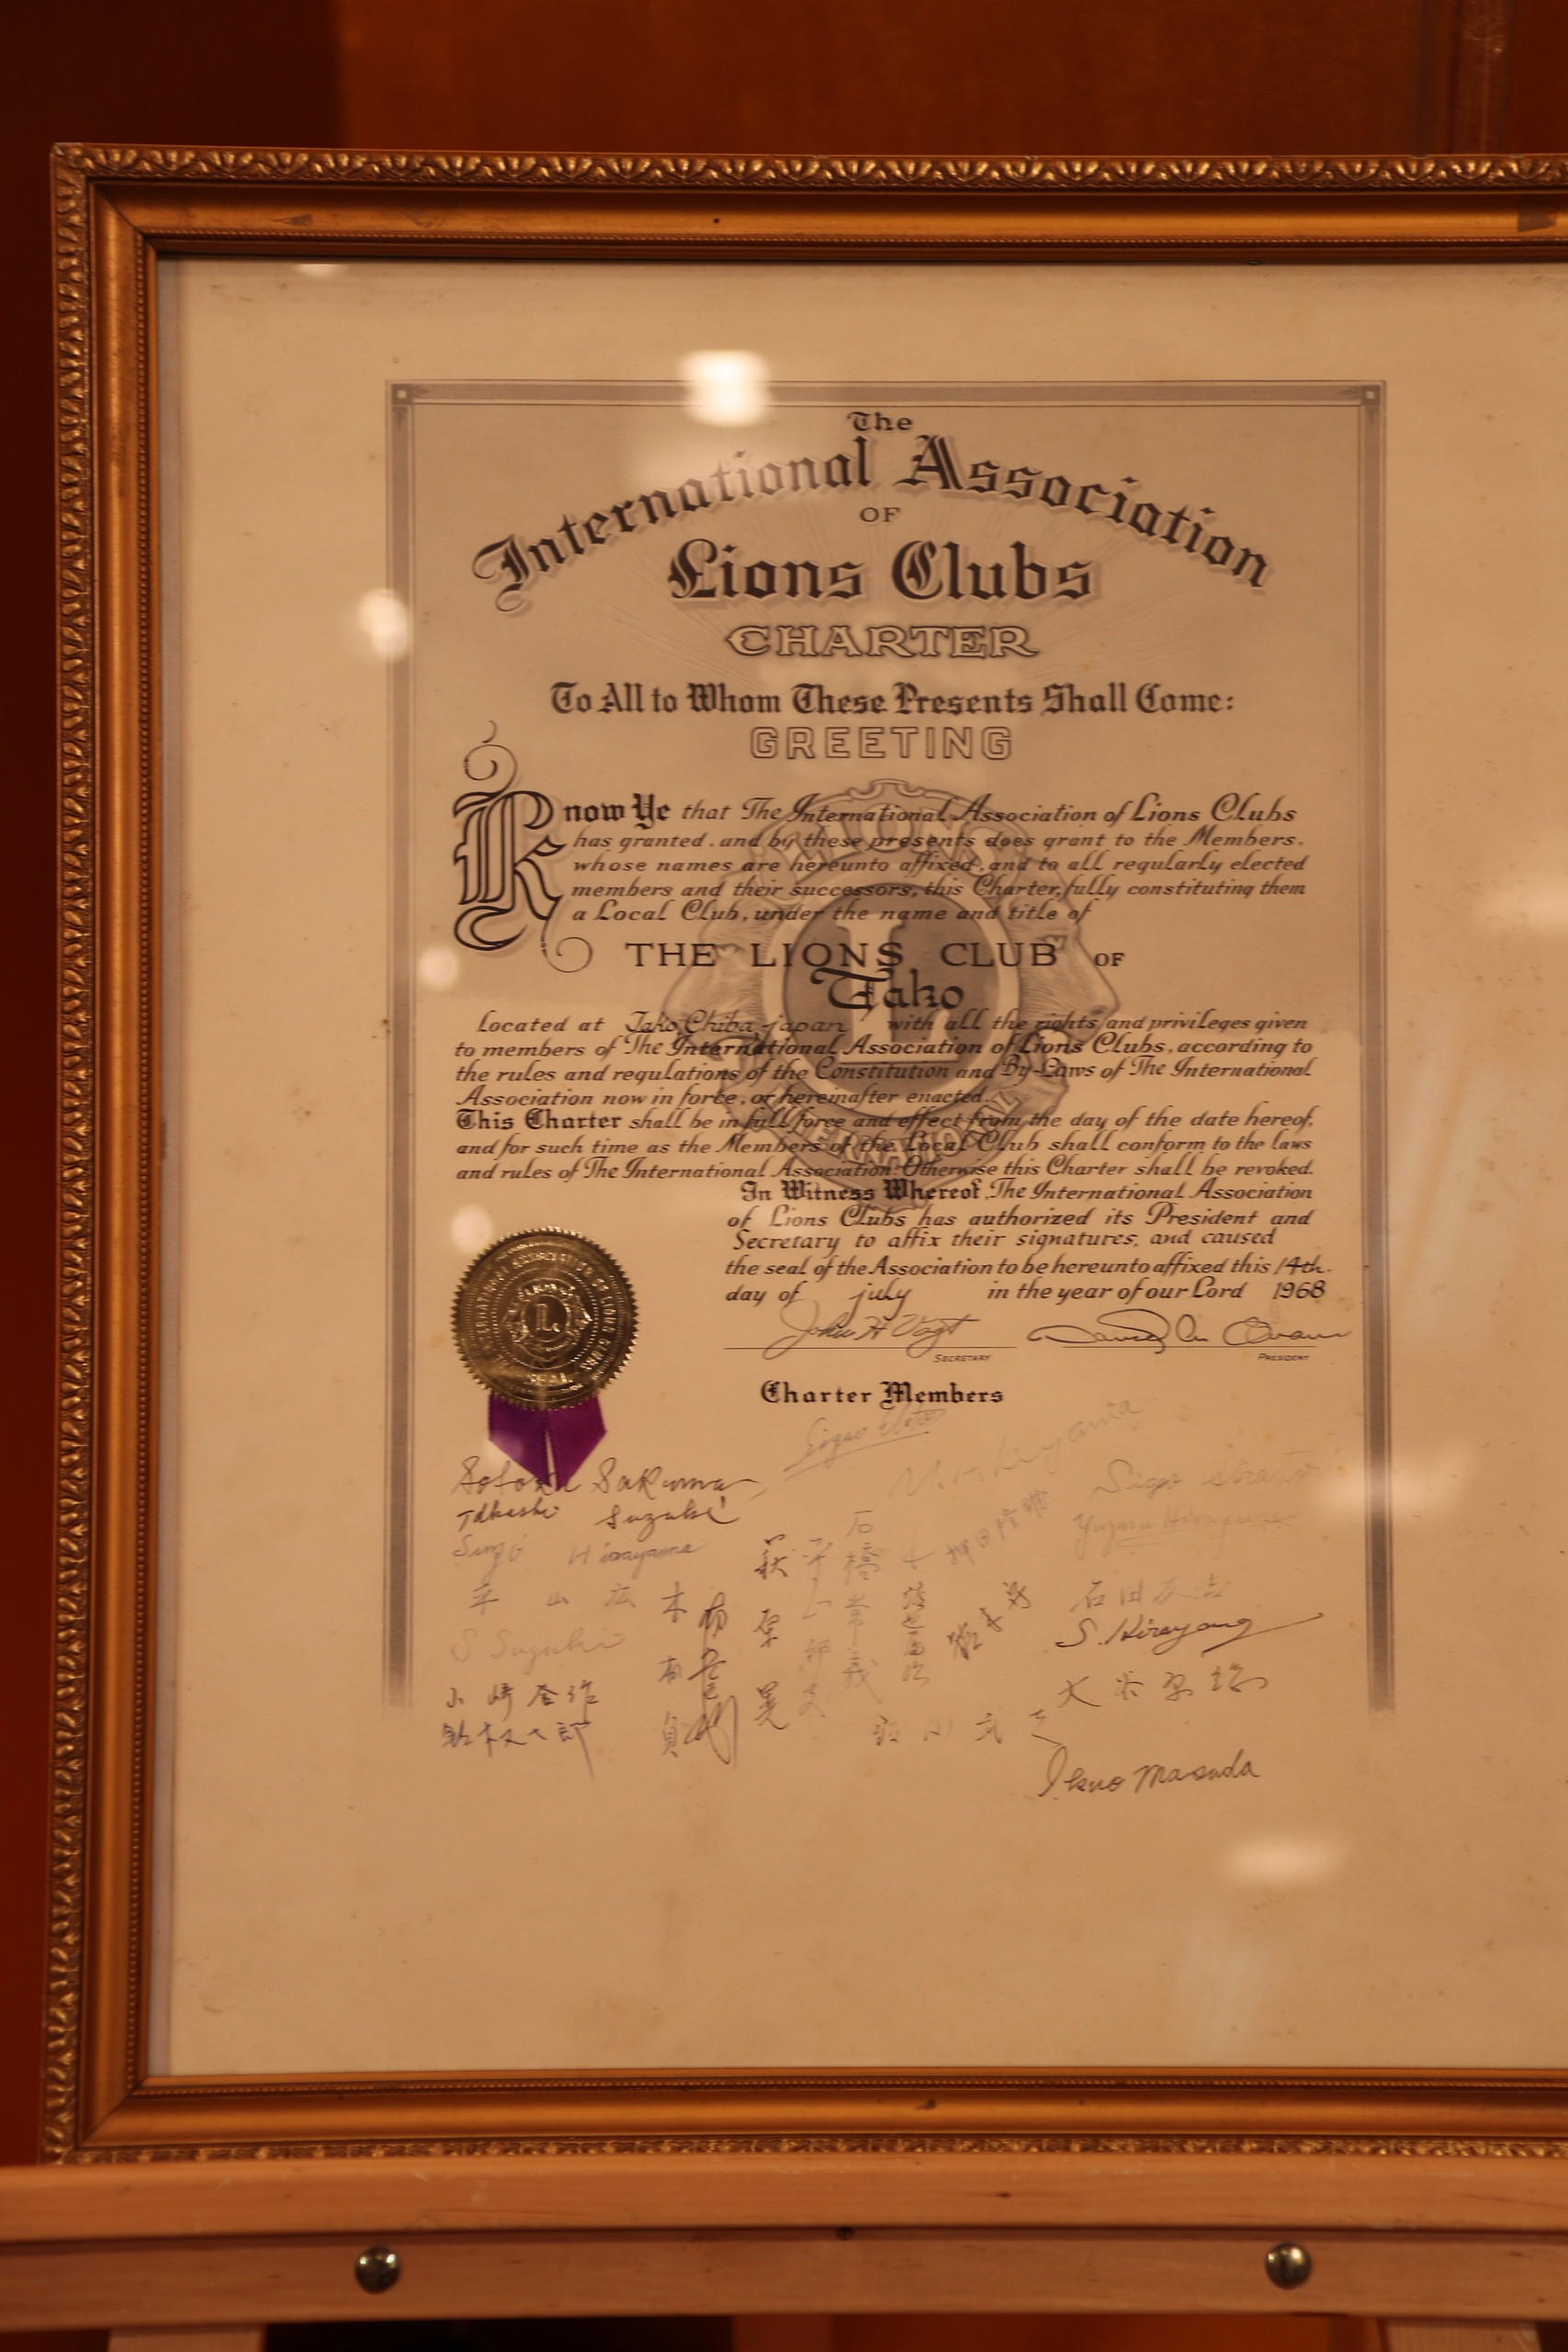 The
International Association
OF
Lions Clubs
CHARTER
To All to Whom These Presents Shall Come:
GREETING
Know Ye that The International Association of Lions Clubs
has granted, and by these presents does grant to the Members,
whose names are hereunto affixed, and to all regularly elected
members and their successors, this Charter, fully constituting them
a Local Club, under the name and title of
THE LIONS CLUB OF
Tako
Located at Tako, Chiba, japan, with all the rights and privileges given
to members of The International Association of Lions Clubs, according to
the rules and regulations of the Constitution and By-Laws of The International
Association now in force, or hereinafter enacted.
This Charter shall be in full force and effect from the day of the date hereof,
and for such time as the Members of the Local Club shall conform to the laws
and rules of The International Association. Otherwise this Charter shall be revoked.
In Witness Whereof, The International Association
of Lions Clubs has authorized its President and
Secretary to affix their signatures, and caused
the seal of the Association to be hereunto affixed this 14th
day of july in the year of our Lord 1968
John H Vogt
SECRETARY PRESIDENT
Charter Members
Sakuma
Takeshi Suzuki
Singo Hirayama
平山
S. Suzuki
S. Hirayama
Ikuo Masuda
LIONS
L
INTERNATIONAL